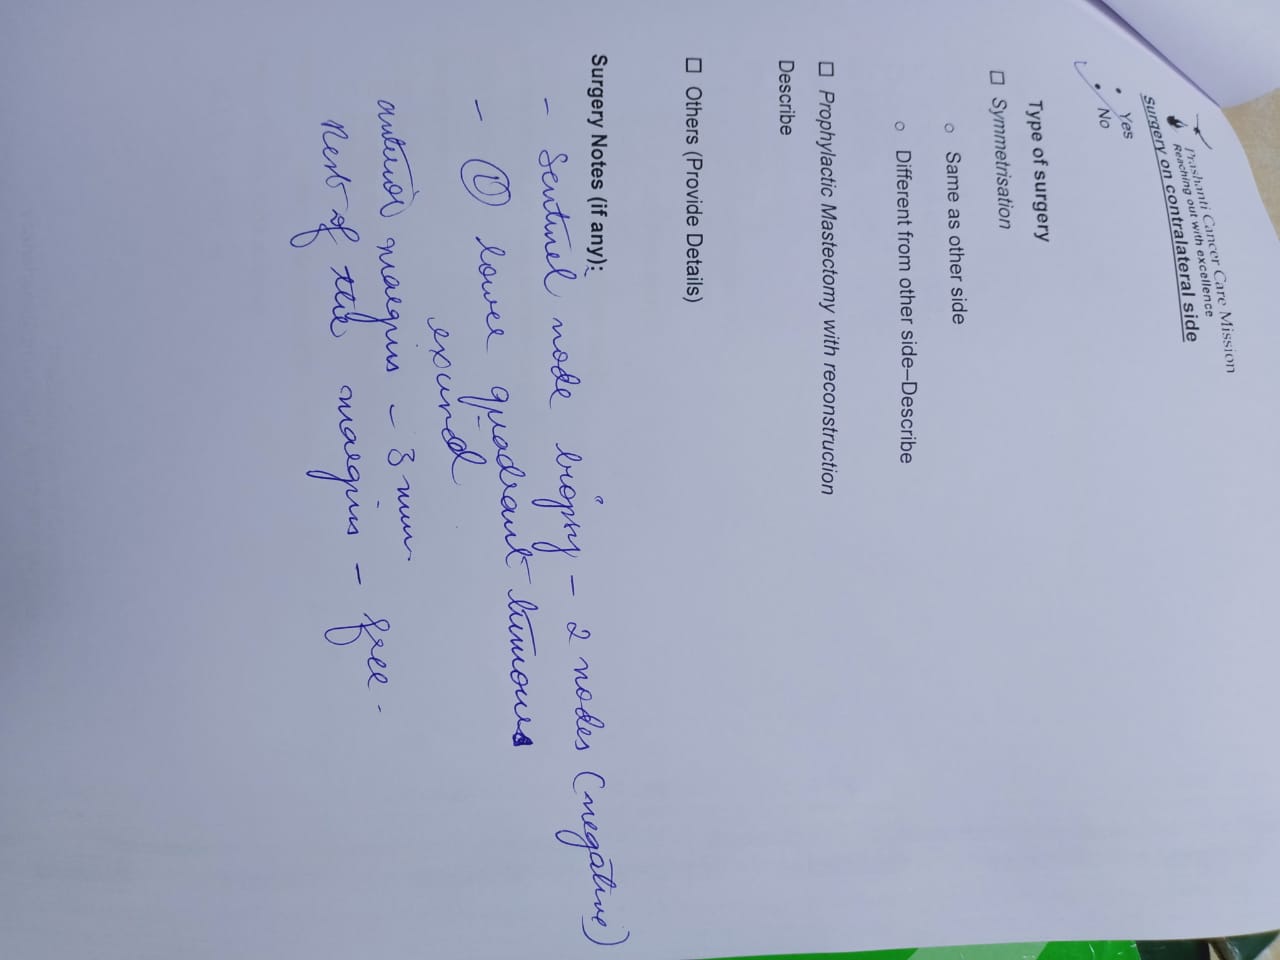 Prashanti Cancer Care Mission
Reaching out with excellence
Surgery on contralateral side
• Yes
• No
Type of surgery
□ Symmetrisation
o Same as other side
o Different from other side–Describe
□ Prophylactic Mastectomy with reconstruction
Describe
□ Others (Provide Details)
Surgery Notes (if any):
- Sentinel node biopsy - 2 nodes (negative)
- lower quadrant tumours
excised
anterior margins - 3 mm.
Rest of the margins - free.